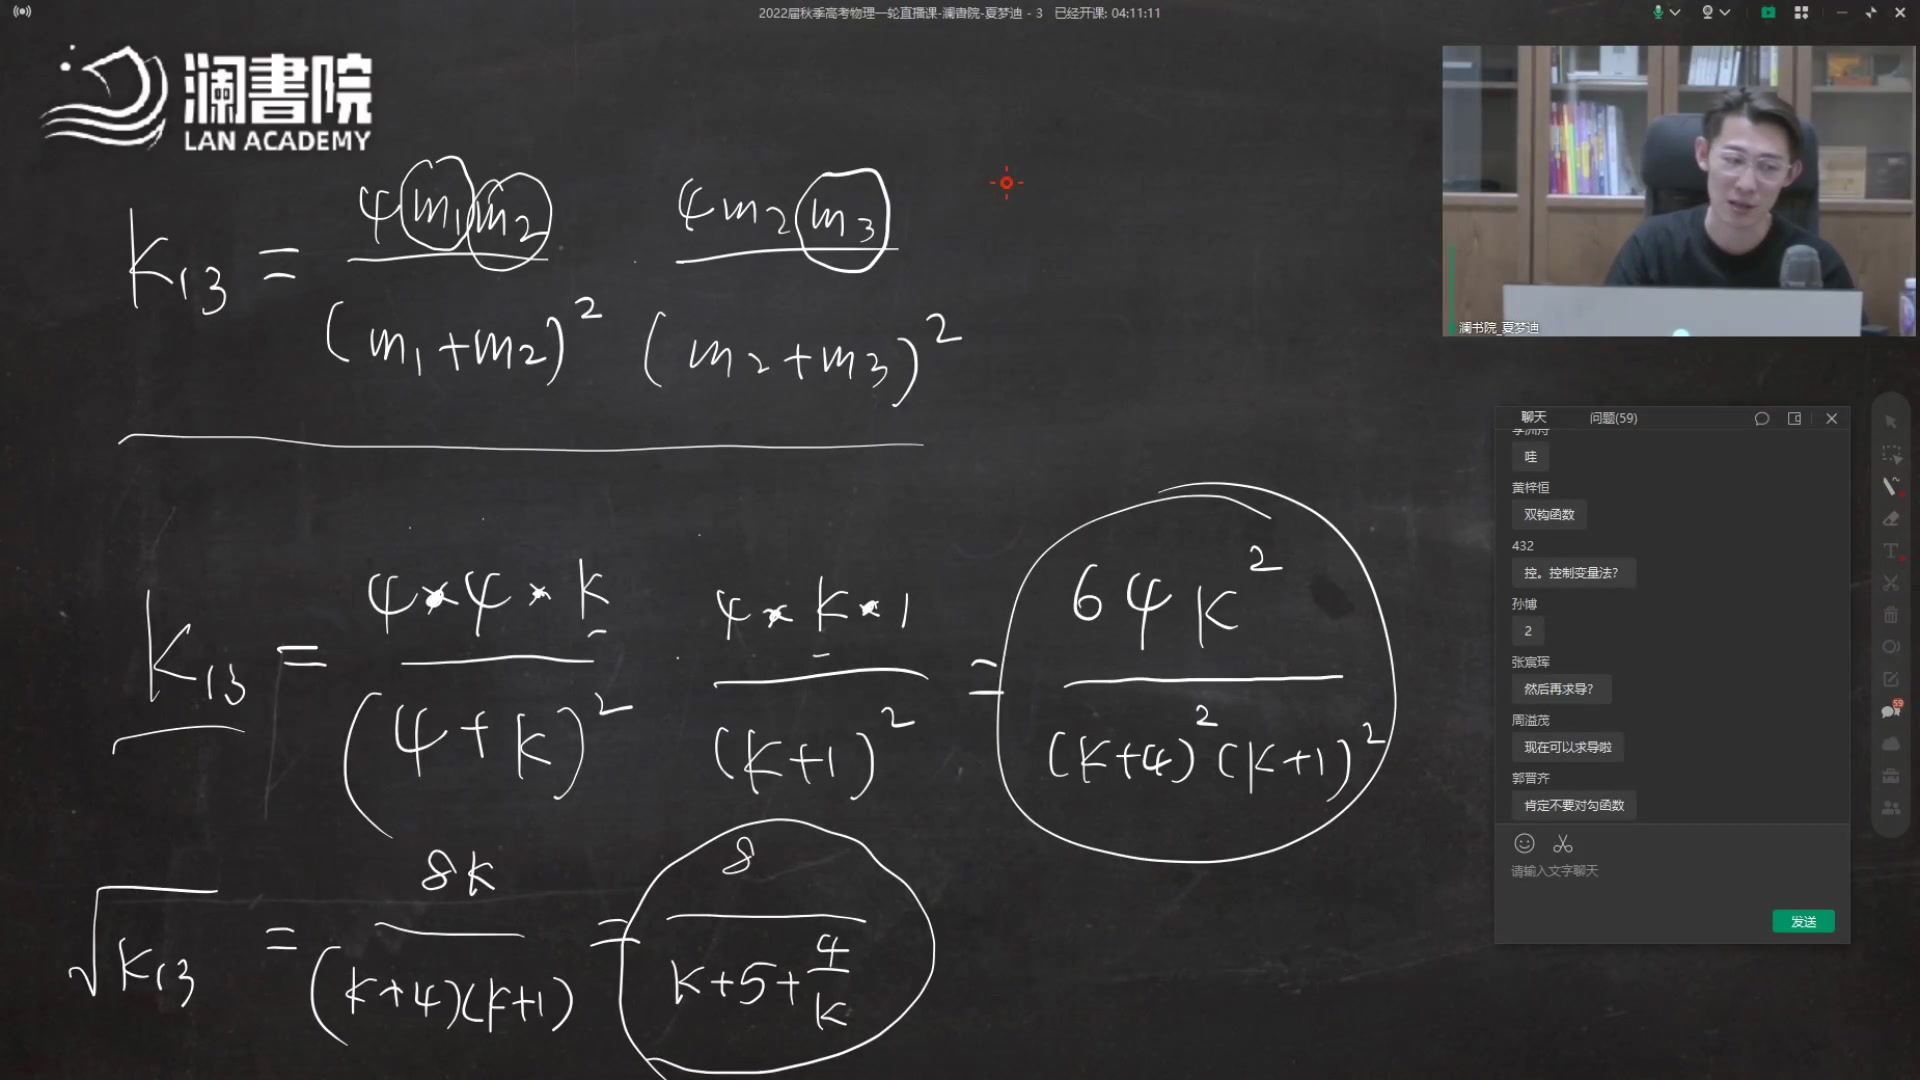 2022届秋季高考物理一轮直播课-澜書院-夏梦迪 - 3 已经开课: 04:11:11
澜書院
LAN ACADEMY
K₁₃ = 4m₁m₂/(m₁+m₂)² · 4m₂m₃/(m₂+m₃)²
K₁₃ = 4×4×k/(4+k)² · 4×k×1/(k+1)² = 64k²/((k+4)²(k+1)²)
√K₁₃ = 8k/((k+4)(k+1)) = 8/(k+5+4/k)
澜书院_夏梦迪
聊天 问题(59)
哇
黄梓恒
双钩函数
432
控。控制变量法?
孙博
2
张宸珲
然后再求导?
周溢茂
现在可以求导啦
郭晋齐
肯定不要对勾函数
请输入文字聊天
发送
59